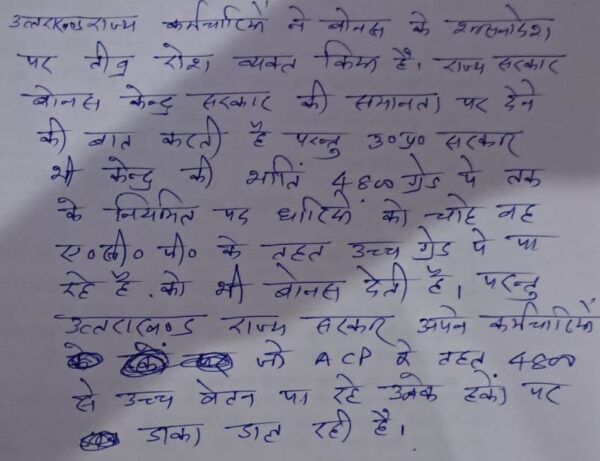 उत्तराखण्ड राज्य कर्मचारियों ने बोनस के शासनादेश
पर तीव्र रोश व्यक्त किया है। राज्य सरकार
बोनस केन्द्र सरकार की समानता पर देने
की बात करती है परन्तु उ०प्र० सरकार
भी केन्द्र की भांति 4800 ग्रेड पे तक
के नियमित पद धारियों को चाहे वह
ए०सी० पी० के तहत उच्च ग्रेड पे पा
रहे है . को भी बोनस देती है। परन्तु
उत्तराखण्ड राज्य सरकार अपने कर्मचारियों
जो ACP के तहत 4800
से उच्च वेतन पा रहे उनके हकों पर
डाका डाल रही है।